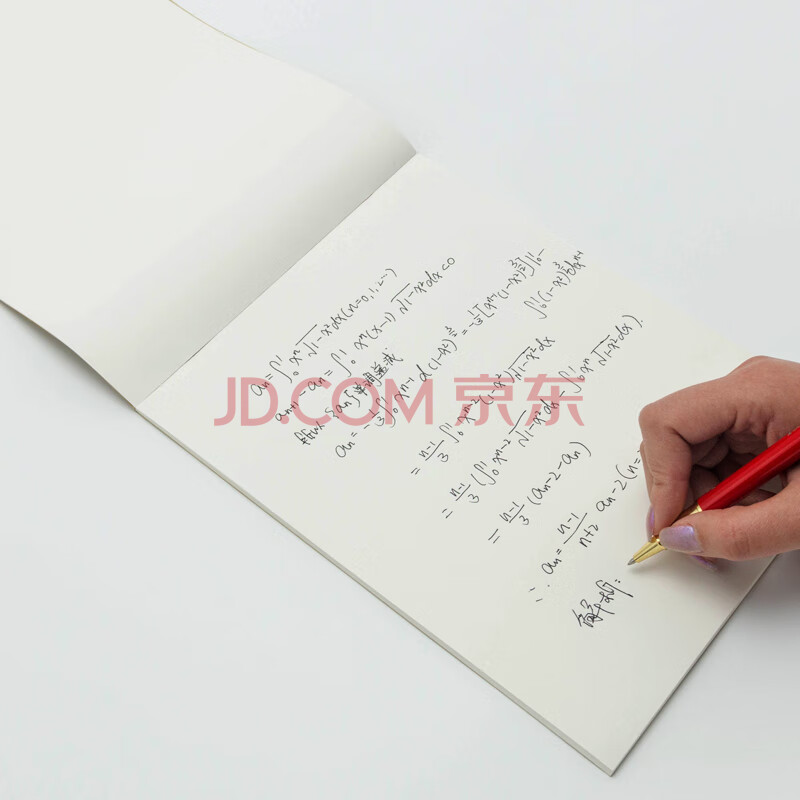 aₙ=∫₀¹ xⁿ√1-x² dx (n=0,1,2…)
aₙ₊₁-aₙ=∫₀¹ xⁿ(x-1)√1-x² dx<0
所以{aₙ}单调递减
aₙ=-1/3∫₀¹ xⁿ⁻¹ d(1-x²)^{3/2}=-1/3[xⁿ⁻¹(1-x²)^{3/2}]|₀¹-
∫₀¹(1-x²)^{3/2}dxⁿ⁻¹
=n-1/3 ∫₀¹ xⁿ⁻²(1-x²)√1-x² dx
=n-1/3(∫₀¹ xⁿ⁻²√1-x² dx-∫₀¹ xⁿ√1-x² dx).
=n-1/3(aₙ-2-aₙ)
∴ aₙ=n-1/n+2 aₙ-2(n=
JD.COM 京东